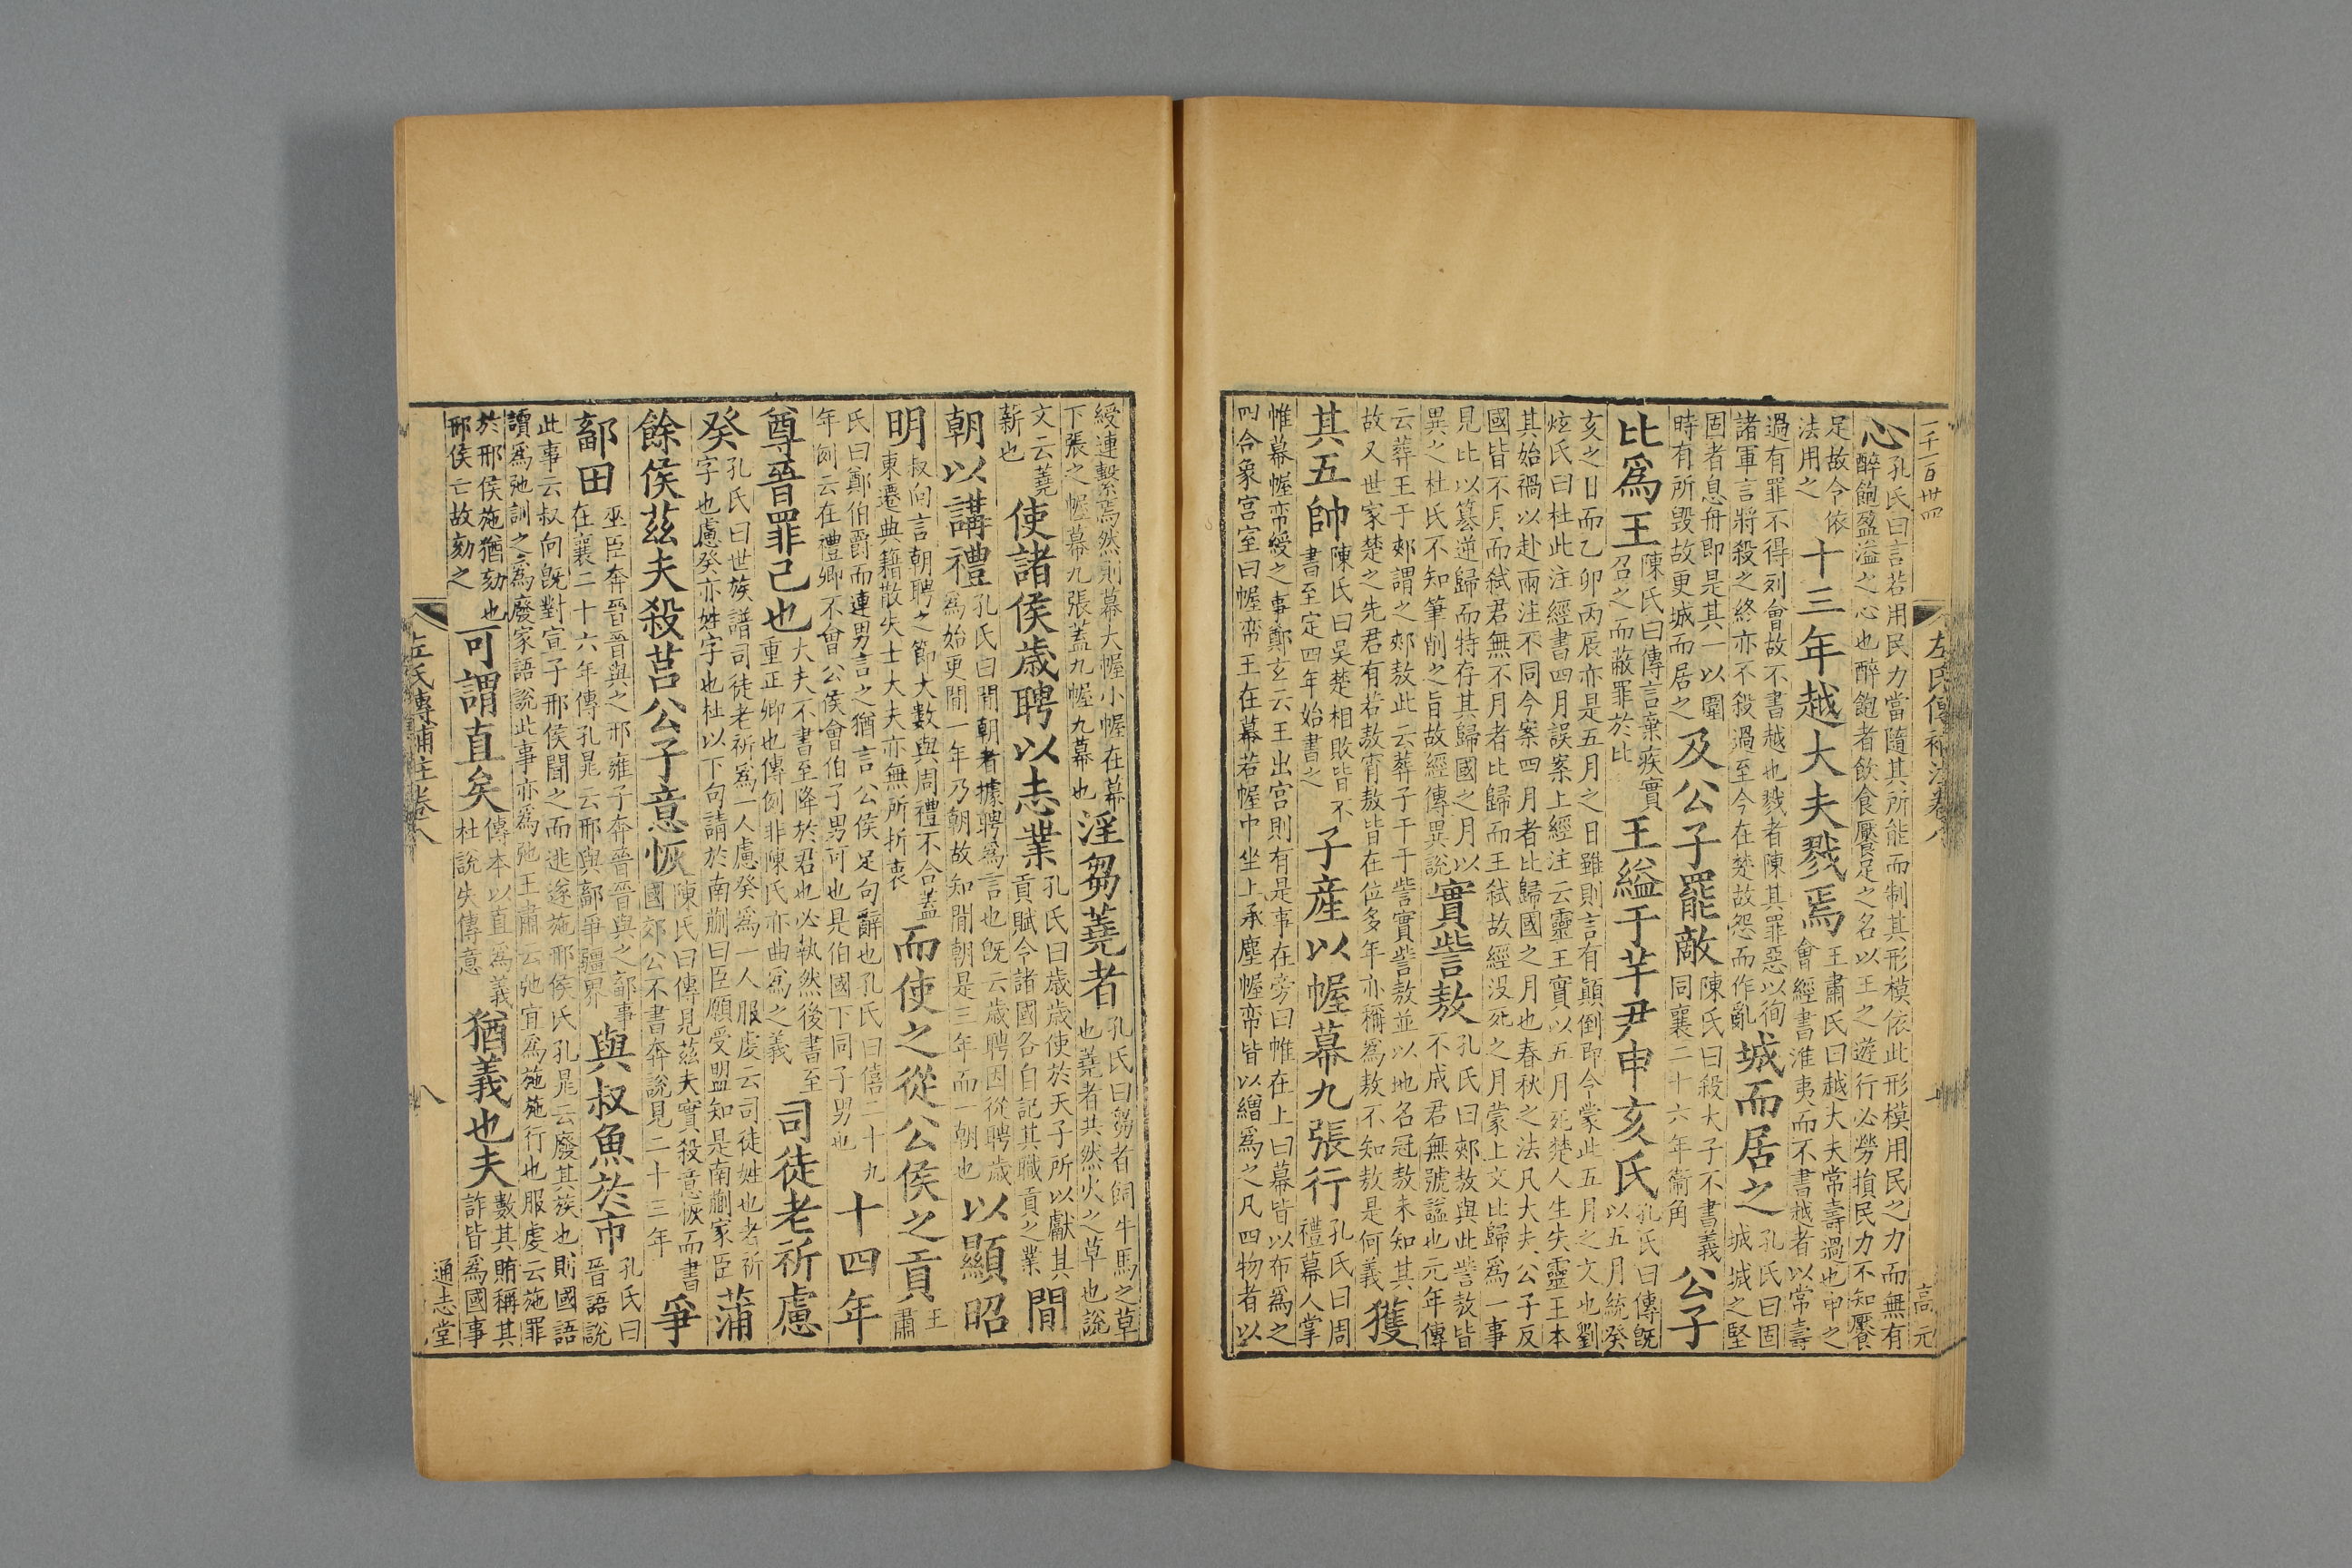 一千一百卅四
左氏傳補注卷八
高元
心孔氏曰言若用民力當隨其所能而制其形模依此形模用民之力而無有醉飽盈溢之心也醉飽者飲食饜足之名以王之遊行必勞損民力不知饜
足故令依法用之十三年越大夫戮焉王肅氏曰越大夫常壽過也申之會經書淮夷而不書越者以常壽
過有罪不得列會故不書越也戮者陳其罪惡以徇諸軍言將殺之終亦不殺過至今在楚故怨而作亂城而居之孔氏曰固城城之堅
固者息舟即是其一以圍時有所毀故更城而居之及公子罷敵陳氏曰殺大子不書義同襄二十六年衞角公子
比爲王陳氏曰傳言棄疾實召之而蔽罪於比王縊于芊尹申亥氏孔氏曰傳旣以五月統癸
亥之日而乙卯丙辰亦是五月之日雖則言有顚倒即今蒙此五月之文也劉炫氏曰杜此注經書四月誤案上經注云靈王實以五月死楚人生失靈王本
其始禍以赴兩注不同今案四月者比歸國之月也春秋之法凡大夫公子反國皆不月而弒君無不月者比歸而王弒故經没死之月蒙上文比歸爲一事
見比以簒逆歸而特存其歸國之月以異之杜氏不知筆削之旨故經傳異說實訾敖孔氏曰郟敖與此訾敖皆不成君無號謚也元年傳
云葬王于郟謂之郟敖此云葬子干于訾實訾敖並以地名冠敖未知其故又世家楚之先君有若敖霄敖皆在位多年亦稱爲敖不知敖是何義獲
其五帥陳氏曰吳楚相敗皆不書至定四年始書之子産以幄幕九張行孔氏曰周禮幕人掌
帷幕幄帟綬之事鄭玄云王出宫則有是事在旁曰帷在上曰幕皆以布爲之四合象宫室曰幄帟王在幕若幄中坐上承塵幄帟皆以繒爲之凡四物者以
綬連繫焉然則幕大幄小幄在幕下張之幄幕九張蓋九幄九幕也淫芻蕘者孔氏曰芻者飼牛馬之草也蕘者共然火之草也說
文云蕘薪也使諸侯歲聘以志業孔氏曰歲歲使於天子所以獻其貢賦今諸國各自記其職貢之業間
朝以講禮孔氏曰間朝者據聘爲言也旣云歲聘因從聘歲爲始更間一年乃朝故知間朝是三年而一朝也以顯昭
明叔向言朝聘之節大數與周禮不合蓋東遷典籍散失士大夫亦無所折衷而使之從公侯之貢王肅
氏曰鄭伯爵而連男言之猶言公侯足句辭也孔氏曰僖二十九年例云在禮卿不會公侯會伯子男可也是伯國下同子男也十四年
尊晉罪己也大夫不書至降於君也必執然後書至重正卿也傳例非陳氏亦曲爲之義司徒老祈慮
癸孔氏曰世族譜司徒老祈爲一人慮癸爲一人服虔云司徒姓也老祈字也慮癸亦姓字也杜以下句請於南蒯曰臣願受盟知是南蒯家臣蒲
餘侯兹夫殺莒公子意恢陳氏曰傳見兹夫實殺意恢而書國郊公不書奔說見二十三年爭
鄐田巫臣奔晉晉與之邢雍子奔晉晉與之鄐事在襄二十六年傳孔晁云邢與鄐爭疆界與叔魚於市孔氏曰晉語說
此事云叔向旣對宣子邢侯聞之而逃遂施邢侯氏孔晁云廢其族也則國語讀爲弛訓之爲廢家語說此事亦爲弛王肅云弛宜爲施施行也服虔云施罪
於邢侯施猶劾也邢侯亡故劾之可謂直矣傳本以直爲義杜說失傳意猶義也夫數其賄稱其詐皆爲國事
左氏傳補注卷八
八
通志堂